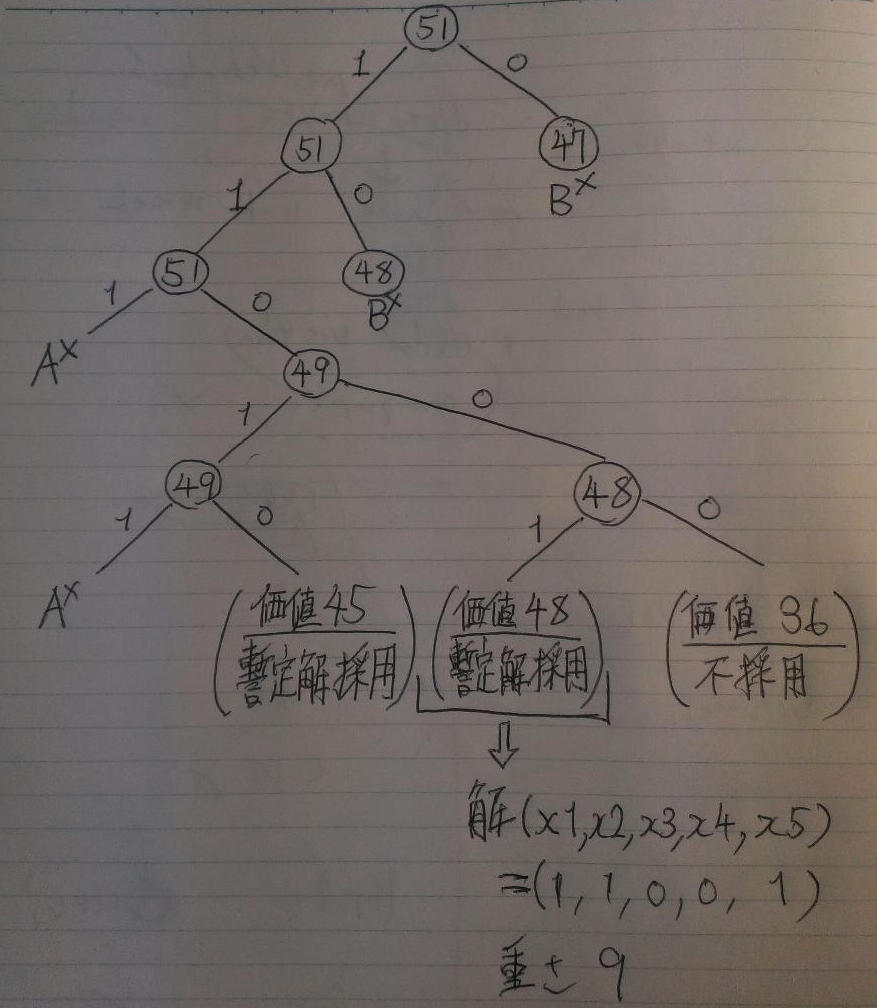 51
1 0
51 47
B×
1 0
51 48
B×
1 0
A×
49
1 0
49 48
1 0 1 0
A×
価値45 価値48 価値 36
暫定解採用 暫定解採用 不採用
⇩
解(x1,x2,x3,x4,x5)
=(1,1,0,0,1)
重さ 9